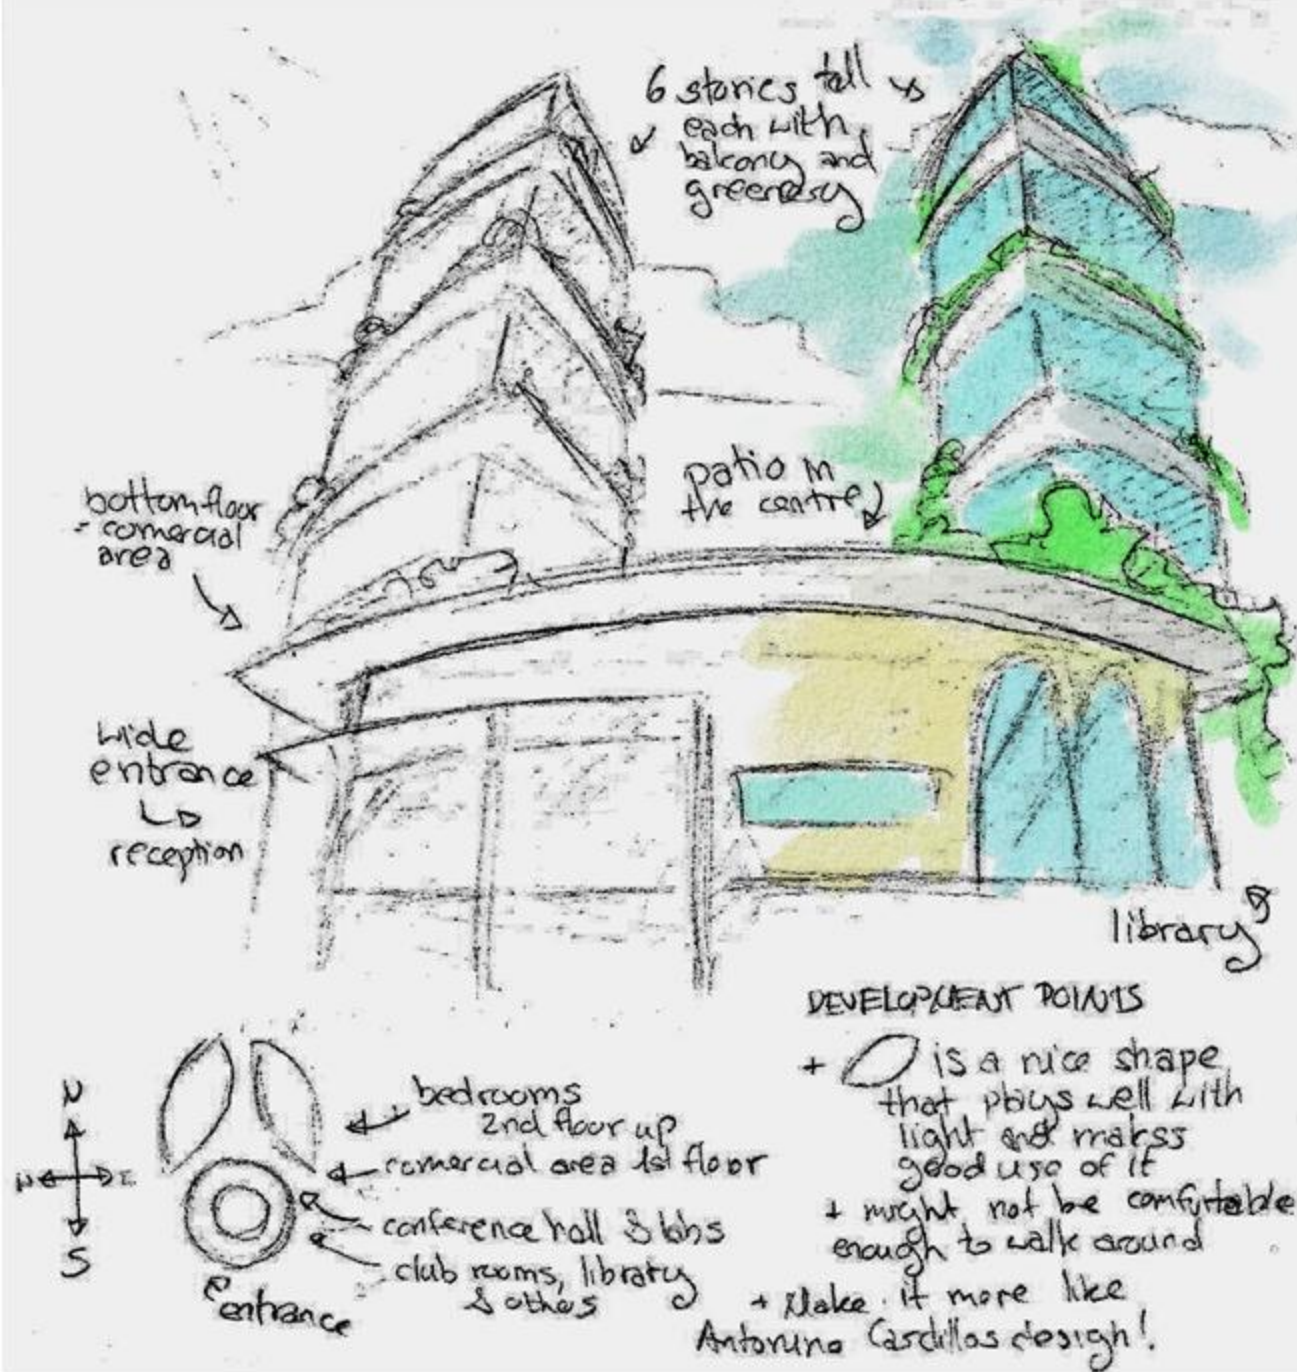 6 stories tall
each with
balcony and
greenery
patio in
the centre
bottom floor
- comercial
area
wide
entrance
reception
library
DEVELOPMENT POINTS
+ is a nice shape
that plays well with
light and makss
good use of it
+ might not be comfurtable
enough to walk around
+ Make it more like
Antonino Cardillos design!
N
W E
S
bedrooms
2nd floor up
comercial area 1st floor
conference hall & labs
club rooms, library
& others
entrance